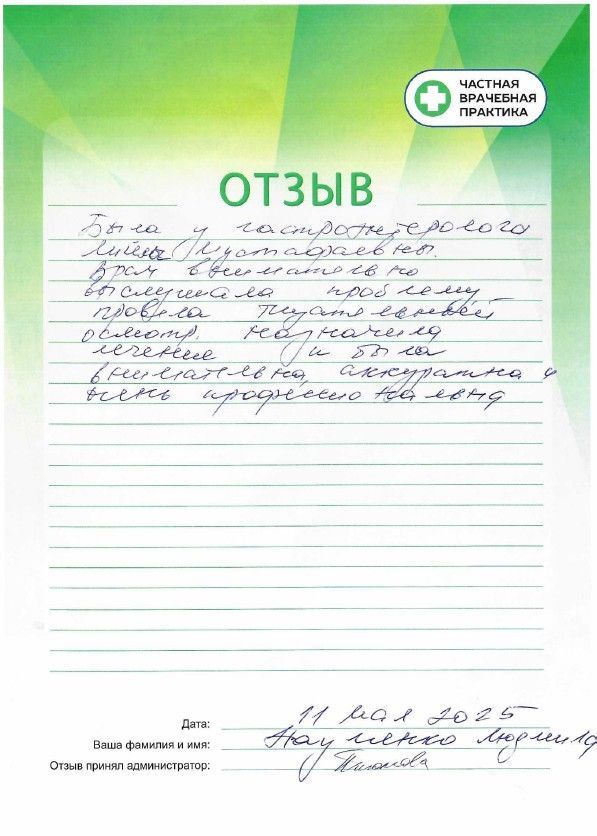 ЧАСТНАЯ
ВРАЧЕБНАЯ
ПРАКТИКА
ОТЗЫВ
Была у гастроэнтеролога
Мустафаевны.
Врач внимательно
выслушала проблему
провела тщательный
осмотр. назначила
лечение и была
внимательна, аккуратна и
очень профессиональна
Дата: 11 мая 2025
Ваша фамилия и имя: Науменко Людмила
Отзыв принял администратор: